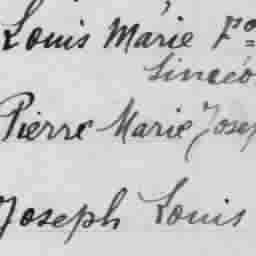 Louis Marie Fo
Pierre Marie Josep
Joseph Louis